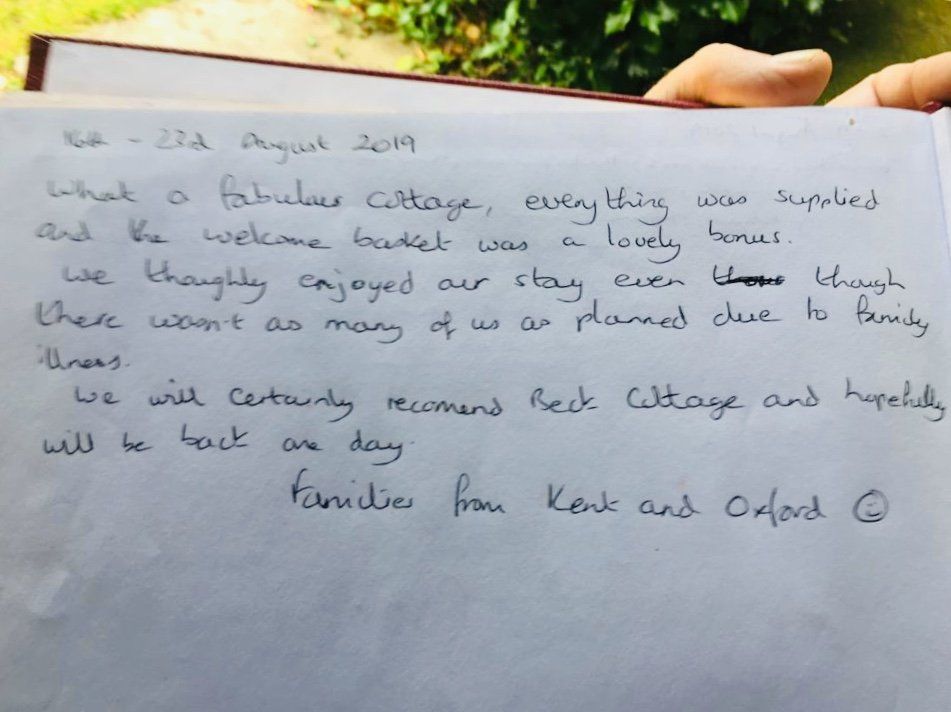 - 23rd August 2019
What a fabulous cottage, everything was supplied
and the welcome basket was a lovely bonus.
We thoughly enjoyed our stay even though
there wasn't as many of us as planned due to family
illness.
We will certainly recomend Beck Cottage and hopefully
will be back one day.
Families from Kent and Oxford ☺